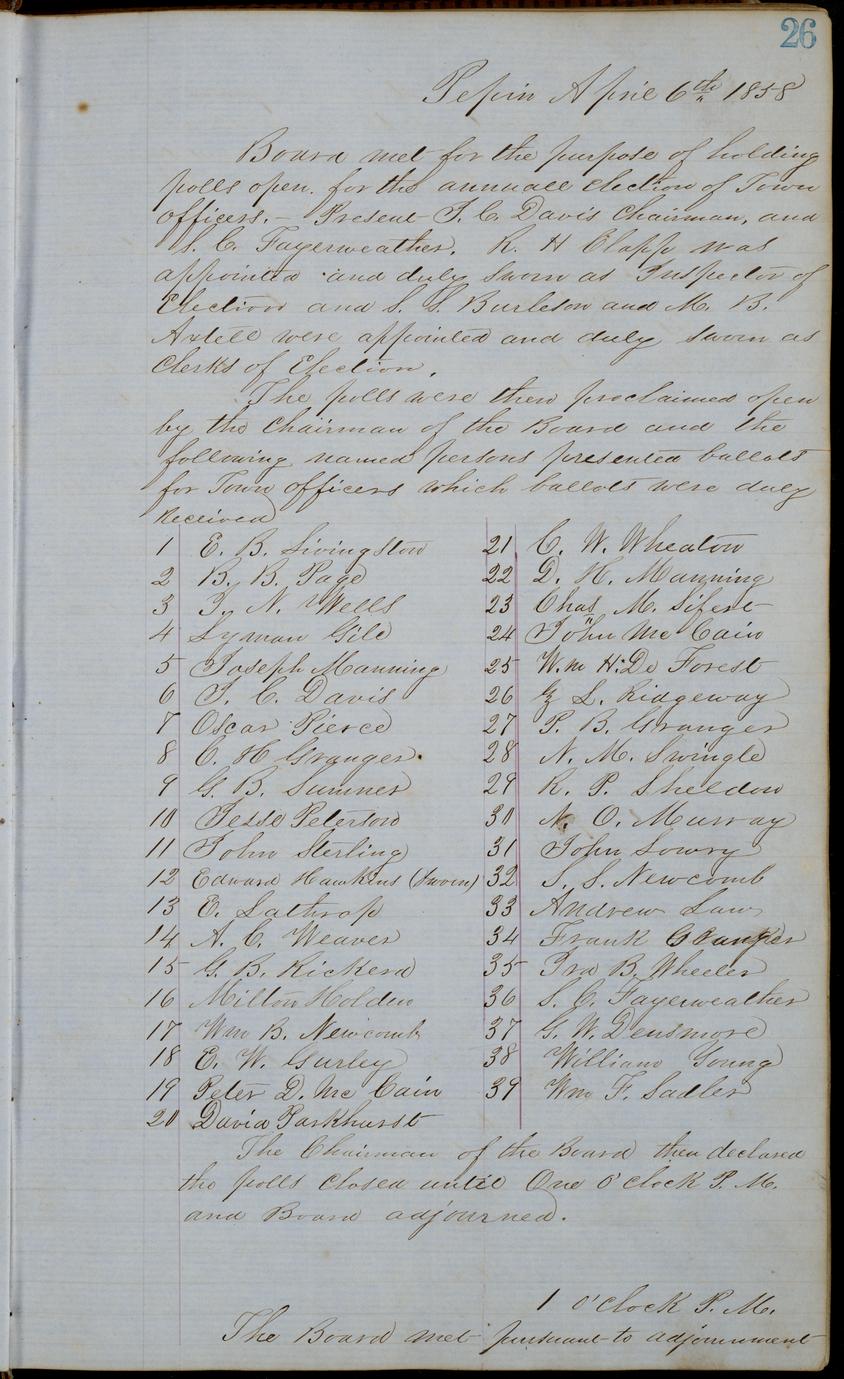 26
Pepin April 6th 1858
Board met for the purpose of holding
polls open. for the annuall election of Town
officers. — Present T. C. Davis Chairman, and
S. C. Fayerweather. R. H Clapp was
appointed and duly sworn as Inspector of
Election and S. S. Burleson and M. B.
Axtell were appointed and duly sworn as
Clerks of Election.
The polls were then proclaimed open
by the Chairman of the Board and the
following named persons presented ballots
for Town officers which ballots were duly
received
1 E. B. Livingston
2 B. B. Page
3 T. N. Wells
4 Lyman Gile
5 Joseph Manning
6 T. C. Davis
7 Oscar Pierce
8 O. H Granger.
9 G. B. Sumner
10 Jesse Peterson
11 John Sterling
12 Edward Hawkins (Sworn)
13 E. Lathrop
14 A. C. Weaver
15 G. B. Rickerd
16 Milton Holden
17 Wm B. Newcomb
18 E. W. Gurley
19 Peter D. Mc Cain
20 David Parkhurst
21 C. W. Wheaton
22 D. H. Manning
23 Chas M. Sifert
24 John Mc Cain
25 Wm H. De Forest
26 L. Ridgeway
27 P. B. Granger
28 N. M. Swingle
29 R. P. Sheldon
30 N. O. Murray
31 John Lowry
32 S. S. Newcomb
33 Andrew Law
34 Frank Granger
35 Ira B. Wheeler
36 S. C. Fayerweather
37 G. W. Densmore
38 William Young
39 Wm F. Sadler
The Chairman of the Board then declared
the polls closed until One O'clock P. M.
and Board adjourned.
1 O'clock P. M.
The Board met pursuant to adjournment